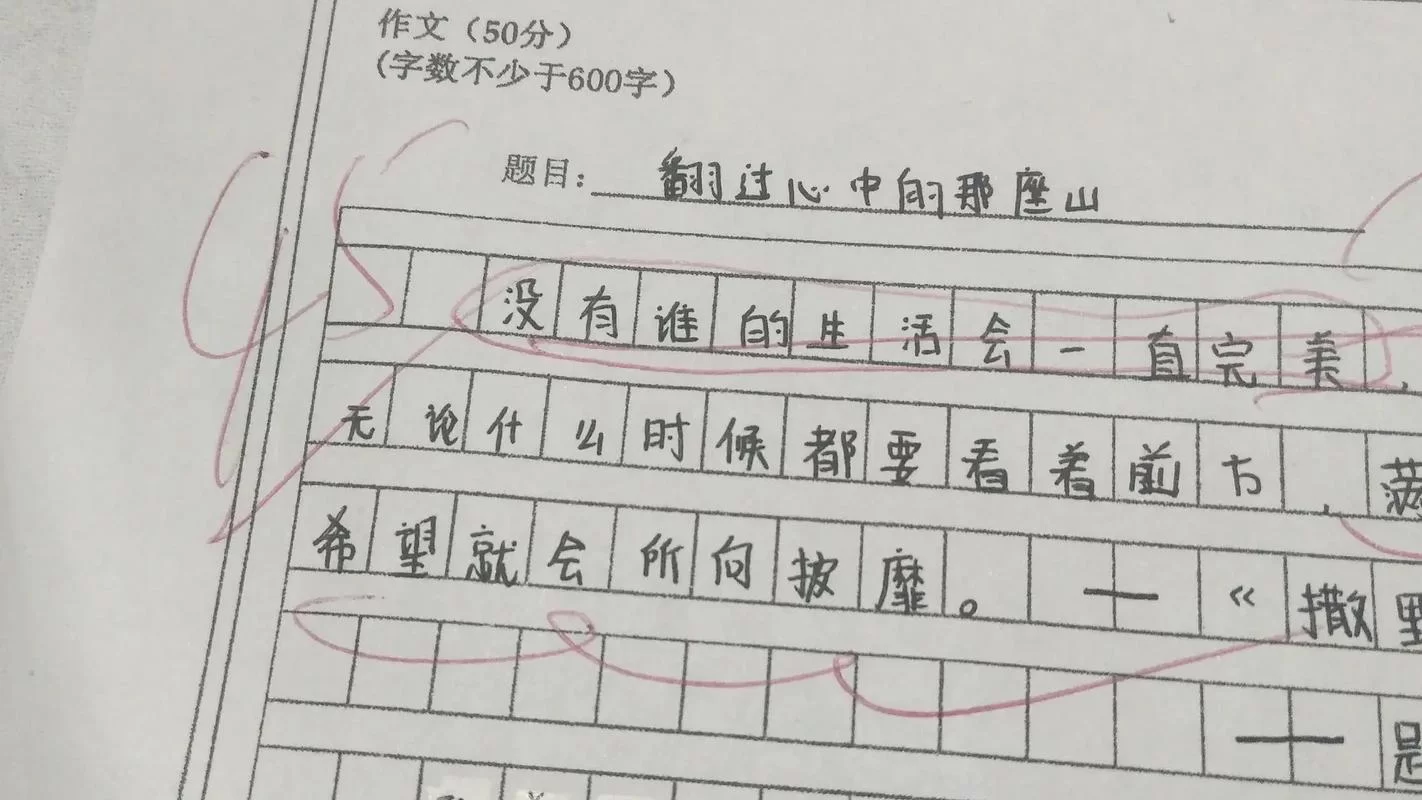 作文（50分）
(字数不少于600字）
题目： 翻过心中的那座山
没有谁的生活会一直完美，
无论什么时候都要看着前方，满
希望就会所向披靡。——《撒野
——是